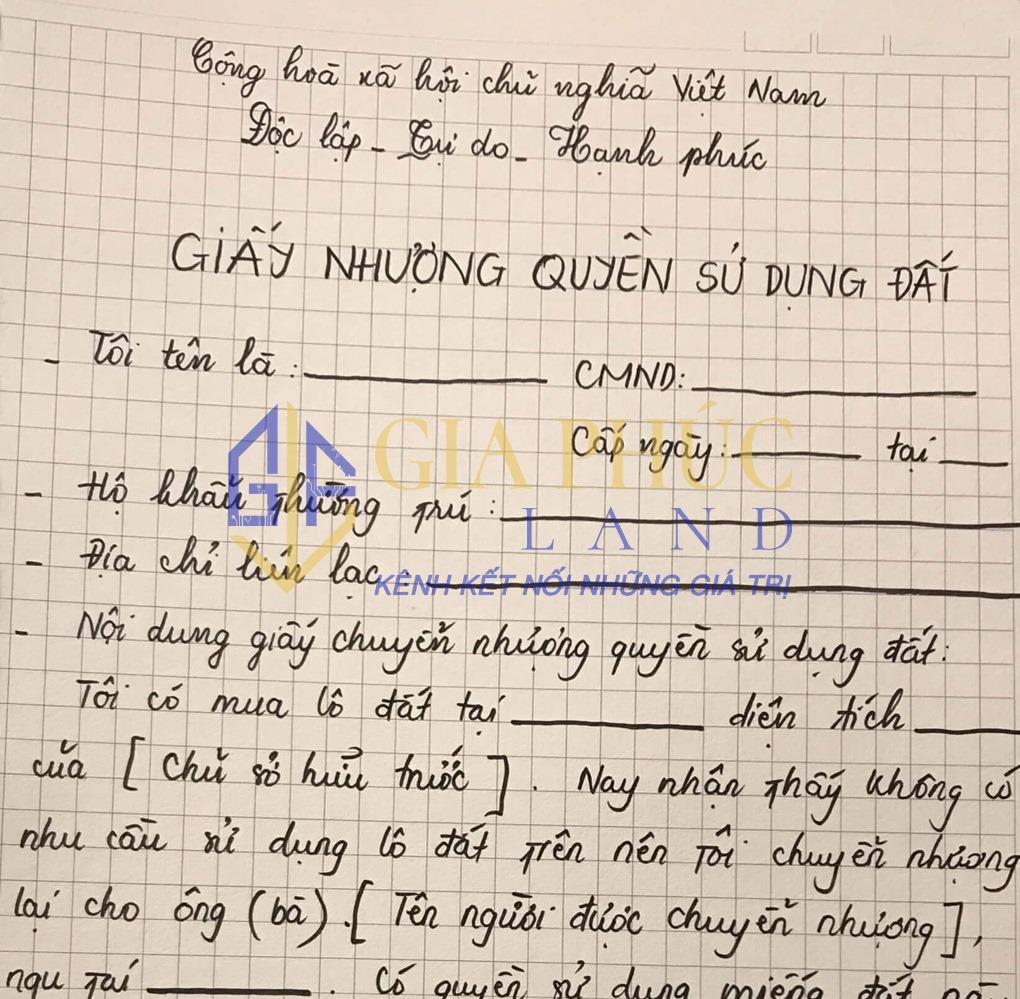 Cộng hoà xã hội chủ nghĩa Việt Nam
Độc lập - Tự do - Hạnh phúc
GIẤY NHƯỢNG QUYỀN SỬ DỤNG ĐẤT
- Tôi tên là : CMND:
Cấp ngày: tại
GIA PHÚC
LAND
KÊNH KẾT NỐI NHỮNG GIÁ TRỊ
- Hộ khẩu thường trú :
- Địa chỉ liên lạc :
- Nội dung giấy chuyển nhượng quyền sử dụng đất:
Tôi có mua lô đất tại diện tích
của [ Chủ sở hữu trước ]. Nay nhận thấy không có
nhu cầu sử dụng lô đất trên nên tôi chuyển nhượng
lại cho ông (bà) .[ Tên người được chuyển nhượng ],
ngụ tại . Có quyền sử dụng miếng đất